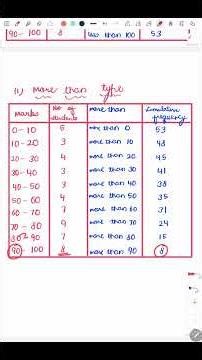 90- 100 8 less than 100 53
(ii) more than type
Marks No of students more than Cumulative frequency
0-10 5 more than 0 53
10-20 3 more than 10 48
20-30 4 more than 20 45
30-40 3 more than 30 41
40-50 3 more than 40 38
50-60 4 more than 50 35
60-70 7 more than 60 31
70-80 9 more than 70 24
80-90 7 more than 80 15
90-100 8 more than 90 8